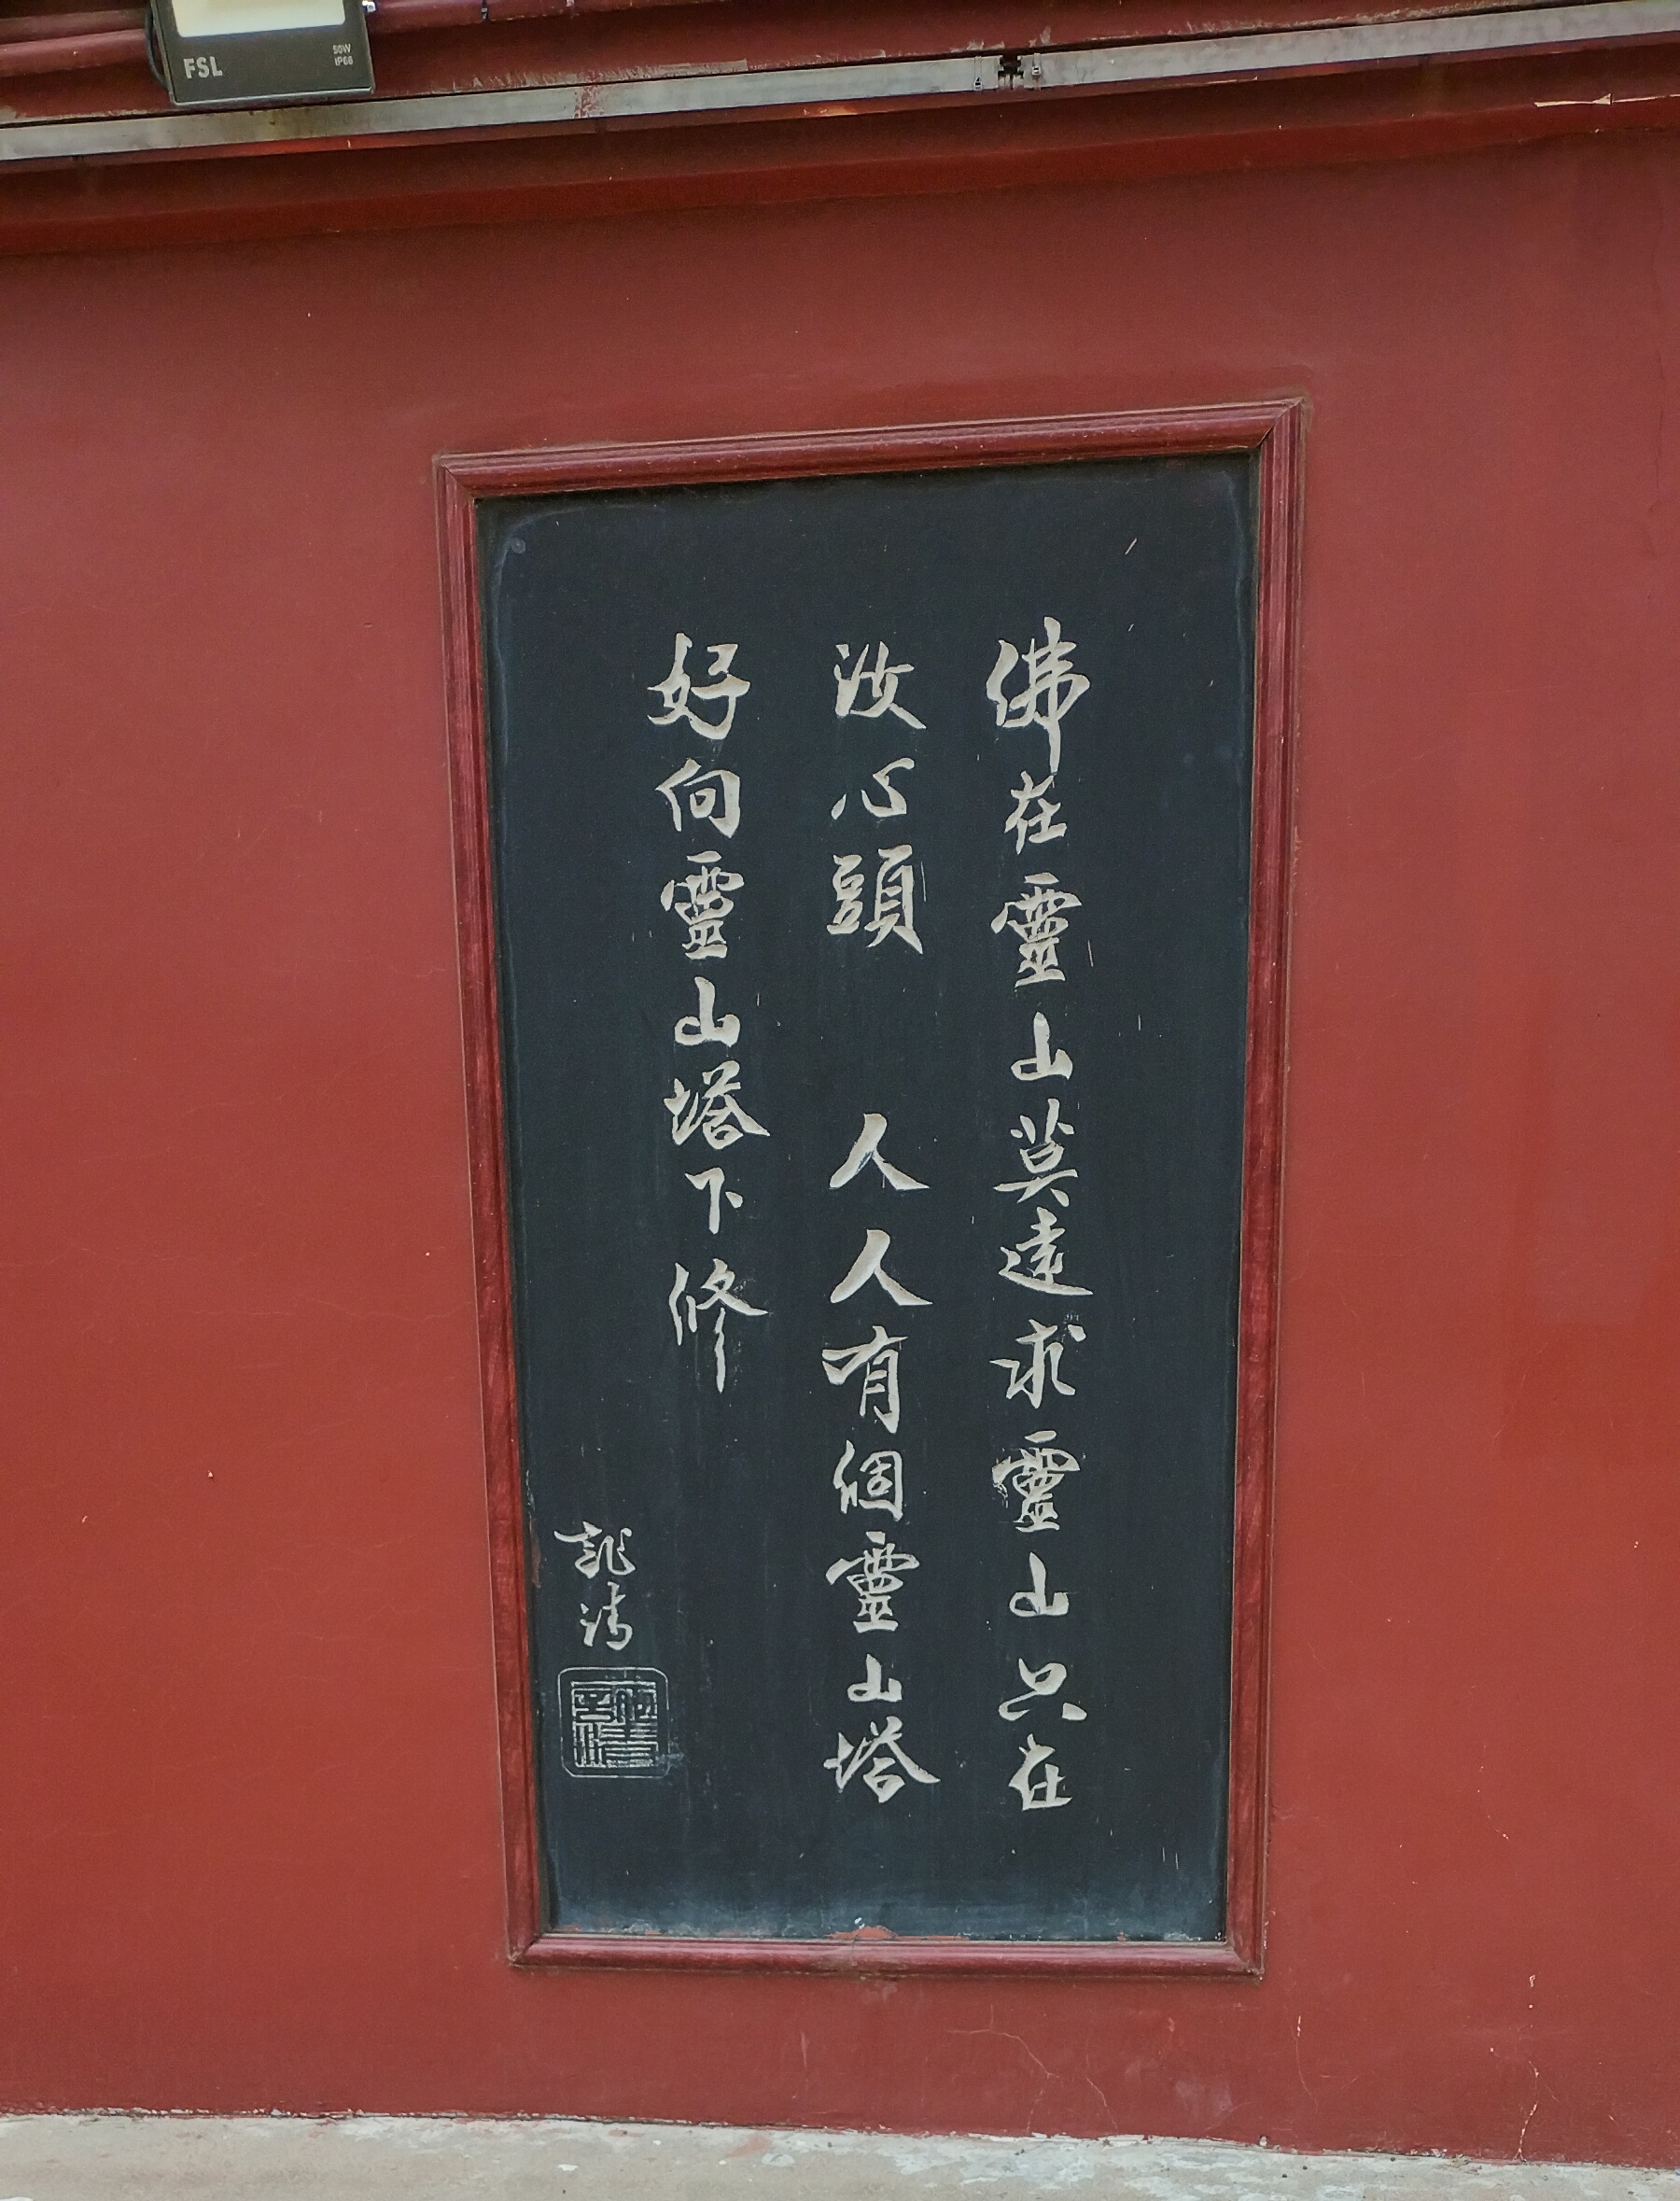 FSL
50W
IP66
佛在靈山莫遠求靈山只在
汝心頭 人人有個靈山塔
好向靈山塔下修